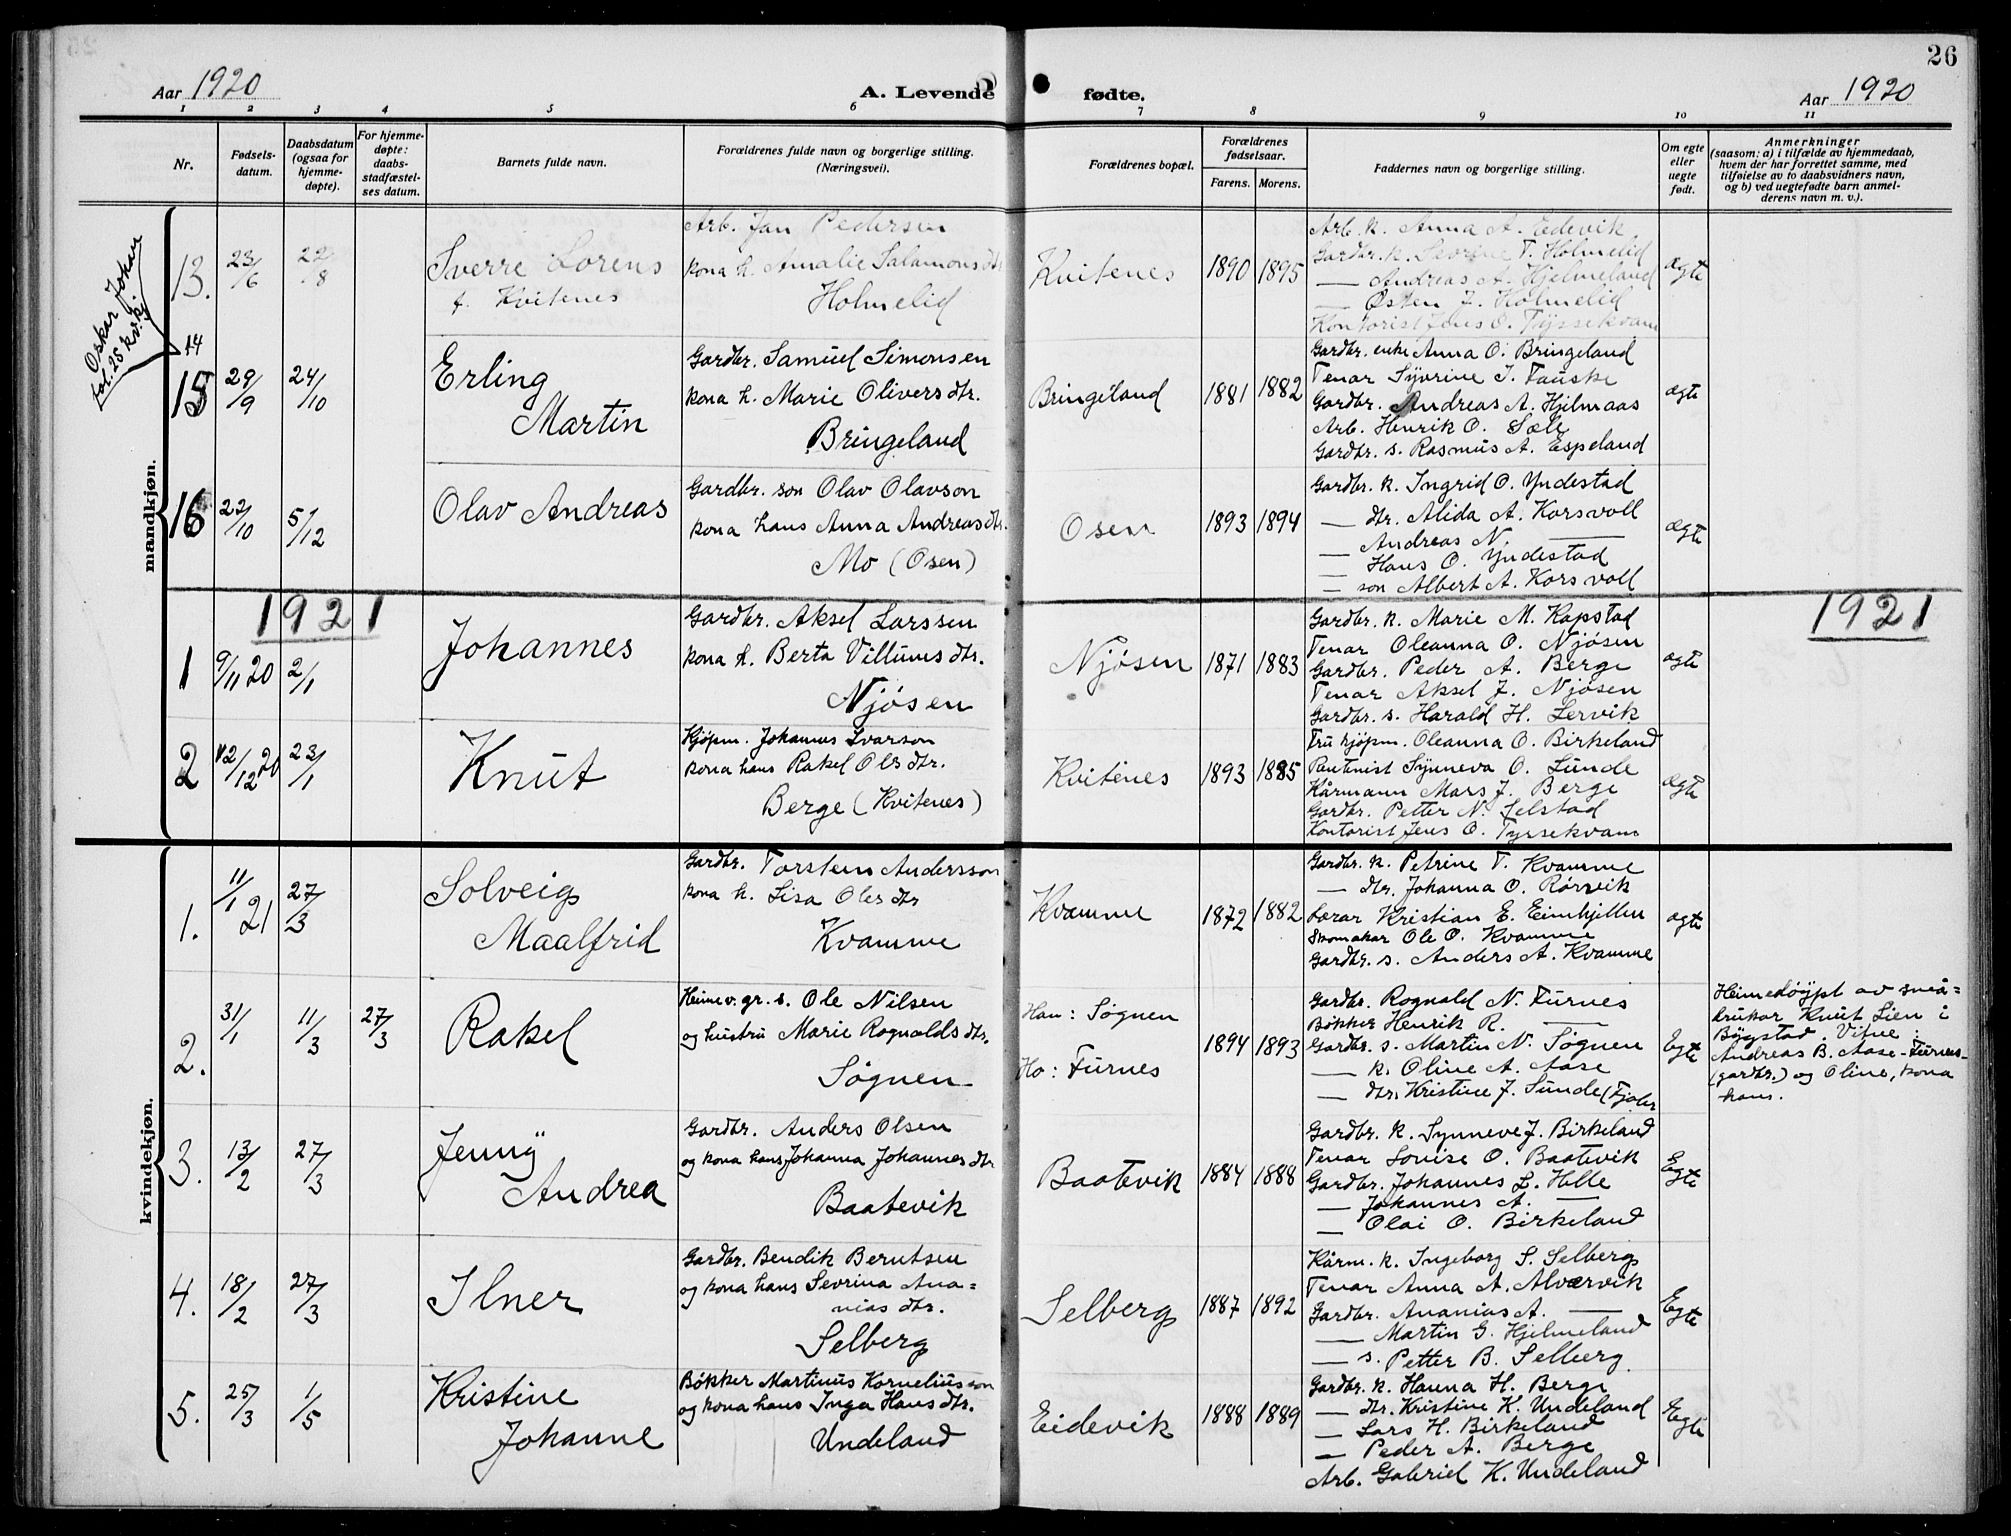 26
Aar 1920
A. Levende fødte.
Aar 1920
1 2 3 4 5 6 7 8 9 10 11
Nr.
Fødsels-
datum.
Daabsdatum
(ogsaa for
hjemme-
døpte).
For hjemme-
døpte:
daabs-
stadfæstel-
ses datum.
Barnets fulde navn.
Forældrenes fulde navn og borgerlige stilling.
(Næringsvei).
Forældrenes bopæl.
Forældrenes
fødselsaar.
Farens. Morens.
Faddernes navn og borgerlige stilling.
Om egte
eller
uegte
født.
Anmerkninger
(saasom: a) i tilfælde av hjemmedaab,
hvem der har forrettet samme, med
tilføielse av to daabsvidners navn,
og b) ved uegtefødte barn anmel-
derens navn m. v.).
mandkjøn.
Oskar Johan
fol. 25 kv.kj.
13.
23/6
22/8
Sverre Lorens
f. Kvitenes
Arb. Jan Pedersen
kona h. Amalie Salamonsdtr
Holmelid
Kvitenes
1890 1895
Arb. k. Anna A. Eidevik
Gardbr. k. Sevrine T. Holmelid
— Andreas A. Hjelmeland
— Østen J. Holmelid
Kontorist Jens O. Tyssekvam
ægte
14
15
29/9
24/10
Erling
Martin
Gardbr. Samuel Simonsen
kona h. Marie Olivers dtr.
Bringeland
Bringeland
1881 1882
Gardbr. enke Anna O. Bringeland
Tenar Syvrine J. Fauske
Gardbr. Andreas A. Hjelmaas
Arb. Henrik O. Sæle
Gardbr. s. Rasmus A. Espeland
ægte
16
22/10
5/12
Olav Andreas
Gardbr. son Olav Olavson
kona hans Anna Andreasdtr.
Mo (Osen)
Osen
1893 1894
Gardbr. k. Ingrid O. Yndestad
— dtr. Alida A. Korsvoll
— Andreas N. —
— Hans O. Yndestad
— son Albert A. Korsvoll
ægte
1921
1921
1
9/11 20
2/1
Johannes
Gardbr. Aksel Larssen
kona h. Berta Villums dtr.
Njøsen
Njøsen
1871 1883
Gardbr. k. Marie M. Kapstad
Tenar Oleanna O. Njøsen
Gardbr. Peder A. Berge
Tenar Aksel J. Njøsen
Gardbr. s. Harald H. Lervik
ægte
2
12/12 20
23/1
Knut
Kjøpm. Johannes Ivarson
kona hans Rakel Ols dtr.
Berge (Kvitenes)
Kvitenes
1893 1885
Fru kjøpm. Oleanna O. Birkeland
Synneva O. Sunde
Kårmann Mars J. Berge
Gardbr. Petter N. Selstad
Kontorist Jens O. Tyssekvam
ægte
kvindekjøn.
1.
11/1 21
27/3
Solveig
Maalfrid
Gardbr. Torstein Andersson
kona h. Lisa Ols dtr
Kvamme
Kvamme
1872 1882
Gardbr. k. Petrine T. Kvamme
— dtr. Johanna O. Rørvik
Lærar Kristian E. Eimhjellen
Skomakar Ole O. Kvamme
Gardbr. s. Anders A. Kvamme
ægte
2.
31/1
11/3
27/3
Rakel
Heimev. gr. s. Ole Nilsen
og hustru Marie Rognalds dtr.
Søgnen
Han: Søgnen
Ho: Furnes
1894 1893
Gardbr. Rognald N. Furnes
Bøkker Henrik R. —
Gardbr. s. Martin N. Søgnen
— k. Oline A. Aase
— dtr. Kristine J. Sunde (Fjaler
Egte
Heimedøypt av små=
brukar Knut Lien i
Bygstad. Vitne:
Andreas B. Aase-Furnes
(gardbr.) og Oline, kona
hans.
3.
13/2
27/3
Jenny
Andrea
Gardbr. Anders Olsen
og kona hans Johanna Johannes dtr
Baatevik
Baatevik
1884 1888
Gardbr. k. Synneve J. Birkeland
Tenar Lovise O. Baatevik
Gardbr. Johannes L. Helle
— Johannes A. —
— Olai O. Birkeland
Egte
4.
18/2
27/3
Ilner
Gardbr. Bendik Berntsen
og kona hans Sevrina Ana=
nias dtr.
Selberg
Selberg
1887 1892
Kårm. k. Ingeborg S. Selberg
Tenar Anna A. Alværvik
Gardbr. Ananias A. —
— Martin G. Hjelmeland
— s. Petter B. Selberg
Egte
5.
25/3
1/5
Kristine
Johanne
Bøkker Martinus Korneliusson
og kona hans Inga Hans dtr.
Undeland
Eidevik
1888 1889
Gardbr. k. Hanna H. Berge
— dtr. Kristine K. Undeland
— Lars H. Birkeland
— Peder A. Berge
Arb. Gabriel K. Undeland
Egte